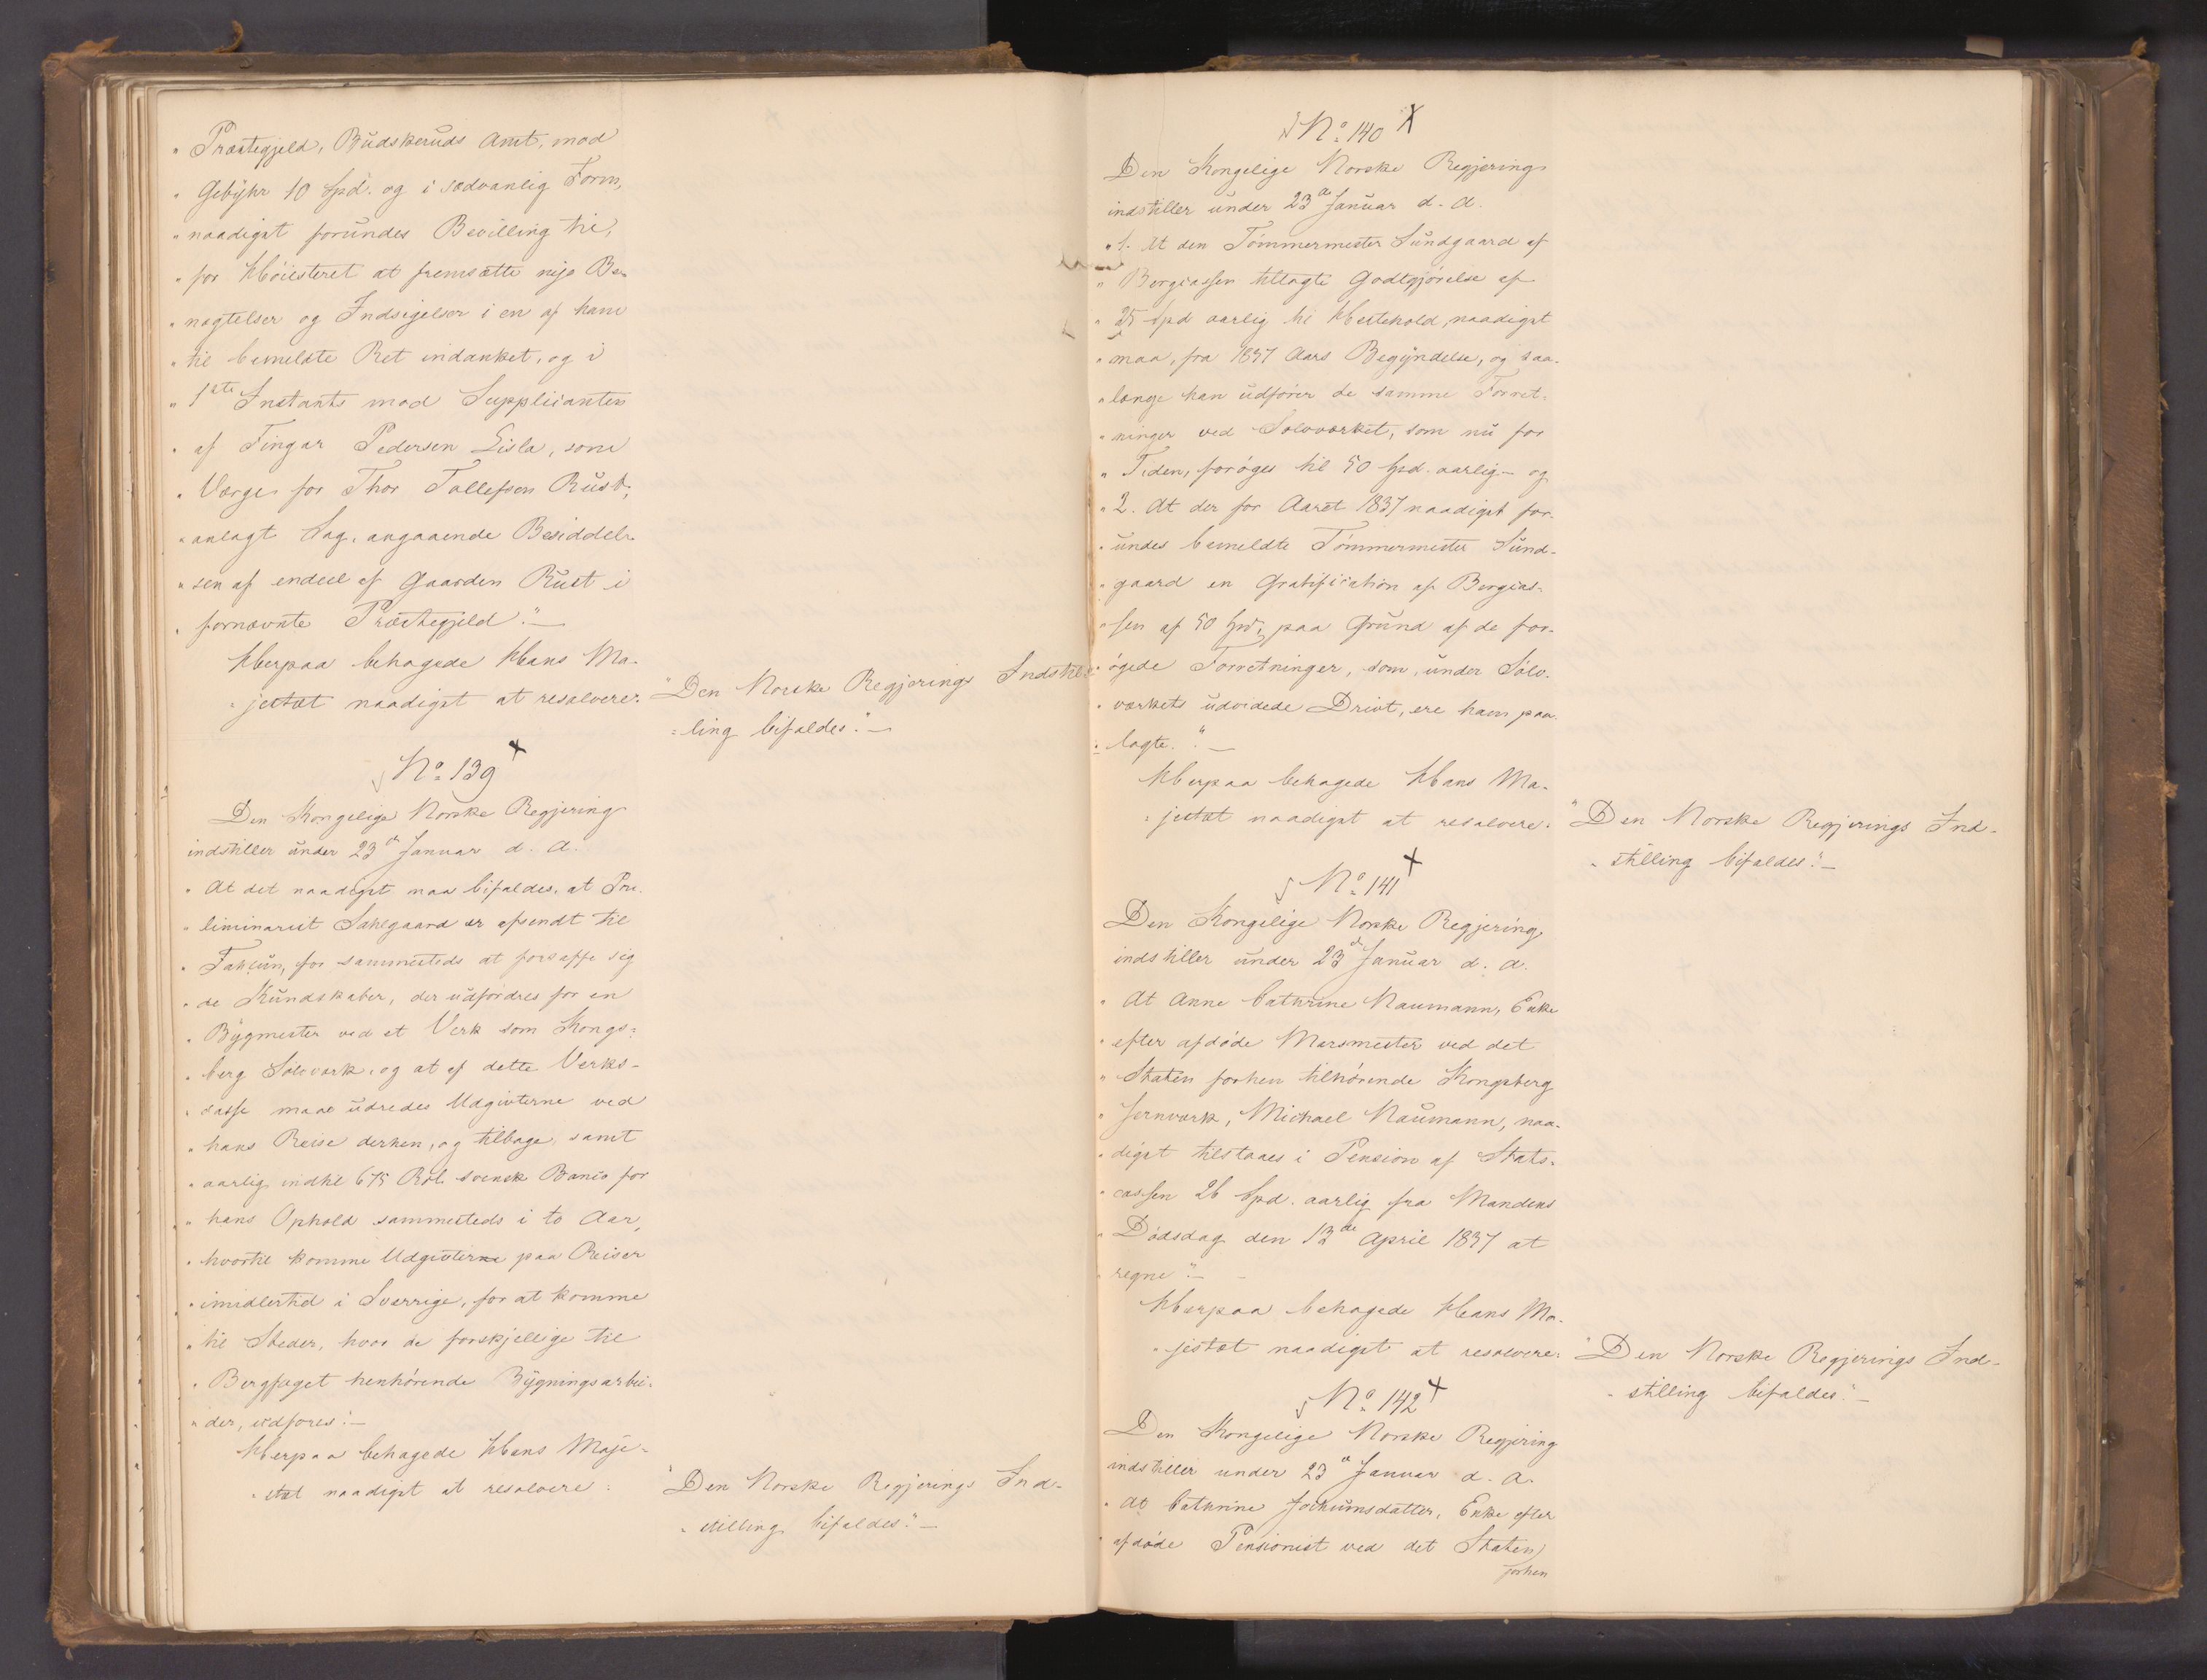 " Præstegjeld, Budskeruds Amt, mod
" Gebyhr 10 Spd. og i sædvanlig Form,
" naadigst forundes Bevilling til,
" for Høiesteret at fremsætte nye Be-
" nægtelser og Indsigelser i en af ham
" til bemeldte Ret indanket, og i
" 1ste Instants mod Supplicanten
" af Fingar Pedersen Lisla, som
" Værge for Thor Tollefsen Rust,
" anlagt Sag, angaaende Besiddel-
" sen af endeel af Gaarden Rust i
" fornævnte Præstegjeld." —
Herpaa behagede Hans Ma-
" jestæt naadigst at resolvere:
"Den Norske Regjerings Indstil-
" ling bifaldes." —
No 139
Den Kongelige Norske Regjering
indstiller under 23de Januar d. A.
" At det naadigst maa bifaldes, at Pre-
" liminarist Sahlgaard er afsendt til
" Fahlun, for sammesteds at forskaffe sig
" de Kundskaber, der udfordres for en
" Bygmester ved et Verk som Kongs-
" berg Sølvværk, og at af dette Verks-
" casse maae udredes Udgivterne ved
" hans Reise derhen, og tilbage, samt
" aarlig indtil 675 Rdl. svensk Banco for
" hans Ophold sammesteds i to Aar,
" hvortil komme Udgivterne paa Reiser
" imidlertid i Sverrige, for at komme
" til Steder, hvor de forskjellige til
" Bergfaget henhørende Bygningsarbei-
" der, udføres." —
Herpaa behagede Hans Maje-
" stæt naadigst at resolvere:
"Den Norske Regjerings Ind-
" stilling bifaldes." —
No 140
Den Kongelige Norske Regjering
indstiller under 23de Januar d. A.
" 1. At den Tømmermester Sundgaard af
" Bergcassen tillagte Godtgjørelse af
" 25 Spd aarlig til Hestehold, naadigst
" maa, fra 1837 Aars Begyndelse, og saa-
" længe han udfører de samme Forret-
" ninger ved Sølvværket, som nu for
" Tiden, forøges til 50 Spd. aarlig - og
" 2. At der for Aaret 1837 naadigst for-
" undes bemeldte Tømmermester Sund-
" gaard en Gratification af Bergcas-
" sen af 50 Spd, paa Grund af de for-
" øgede Forretninger, som, under Sølv-
" værkets udvidede Drivt, ere ham paa-
" lagte." —
Herpaa behagede Hans Ma-
" jestæt naadigst at resolvere:
"Den Norske Regjerings Ind-
" stilling bifaldes." —
No 141
Den Kongelige Norske Regjering
indstiller under 23de Januar d. A.
" At Anne Cathrine Naumann, Enke
" efter afdøde Marsmester ved det
" Staten forhen tilhørende Kongsberg
" Jernværk, Michael Naumann, naa-
" digst tilstaaes i Pension af Stats-
" cassen 26 Spd. aarlig fra Mandens
" Dødsdag den 13de April 1837 at
" regne." —
Herpaa behagede Hans Ma-
" jestæt naadigst at resolvere:
"Den Norske Regjerings Ind-
" stilling bifaldes." —
No 142
Den Kongelige Norske Regjering
indstiller under 23de Januar d. A.
" At Cathrine Jochumsdatter, Enke efter
" afdøde Pensionist ved det Staten
forhen